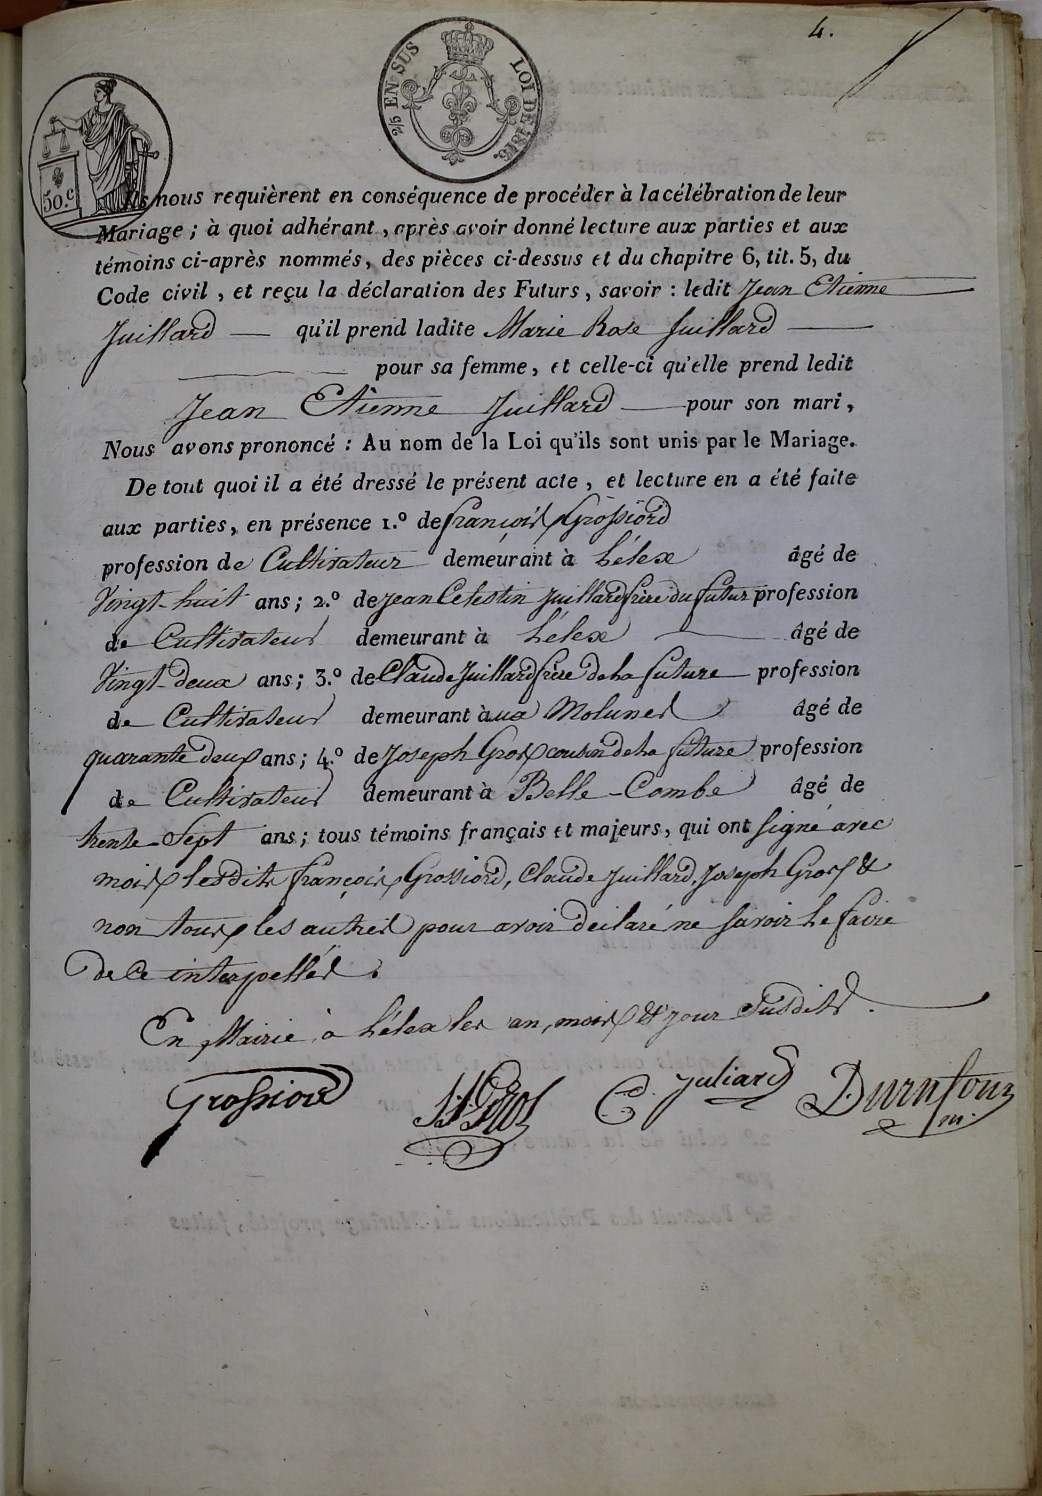 4.
2/5 EN SUS LOI DE 1816.
50.c
Ils nous requièrent en conséquence de procéder à la célébration de leur
Mariage ; à quoi adhérant , après avoir donné lecture aux parties et aux
témoins ci-après nommés, des pièces ci-dessus et du chapitre 6, tit. 5, du
Code civil , et reçu la déclaration des Futurs , savoir : ledit Jean Etienne
Juillard — qu'il prend ladite Marie Rose Juillard —
— pour sa femme , et celle-ci qu'elle prend ledit
Jean Etienne Juillard — pour son mari ,
Nous avons prononcé : Au nom de la Loi qu'ils sont unis par le Mariage.
De tout quoi il a été dressé le présent acte , et lecture en a été faite
aux parties, en présence 1.º de françois Grossiord
profession de Cultivateur demeurant à Lélex âgé de
Vingt-huit ans ; 2.º de Jean Celestin Juillard frère du futur profession
de Cultivateur demeurant à Lélex — âgé de
Vingt-deux ans ; 3.º de Claude Juillard frère de la future — profession
de Cultivateur demeurant à ux Molunes âgé de
quarante deux ans ; 4.º de Joseph Gros cousin de la future profession
de Cultivateur demeurant à Belle-Combe âgé de
trente-Sept ans ; tous témoins français et majeurs, qui ont signé avec
nous lesdits françois Grossiord, Claude Juillard, Joseph Gros &
non tous les autres pour avoir déclaré ne savoir le faire
de ce interpellés .
En Mairie à Lélex les an, mois & jour Susdits .
Grossiord
J J Gros
C. Juliard
Durafour
m.